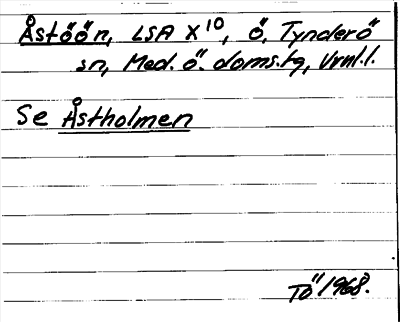 Åstöön, LSA X 10, ö, Tynderö
sn, Med. ö. doms.tg, Vrnl.l.
Se Åstholmen
TÖ 1968.